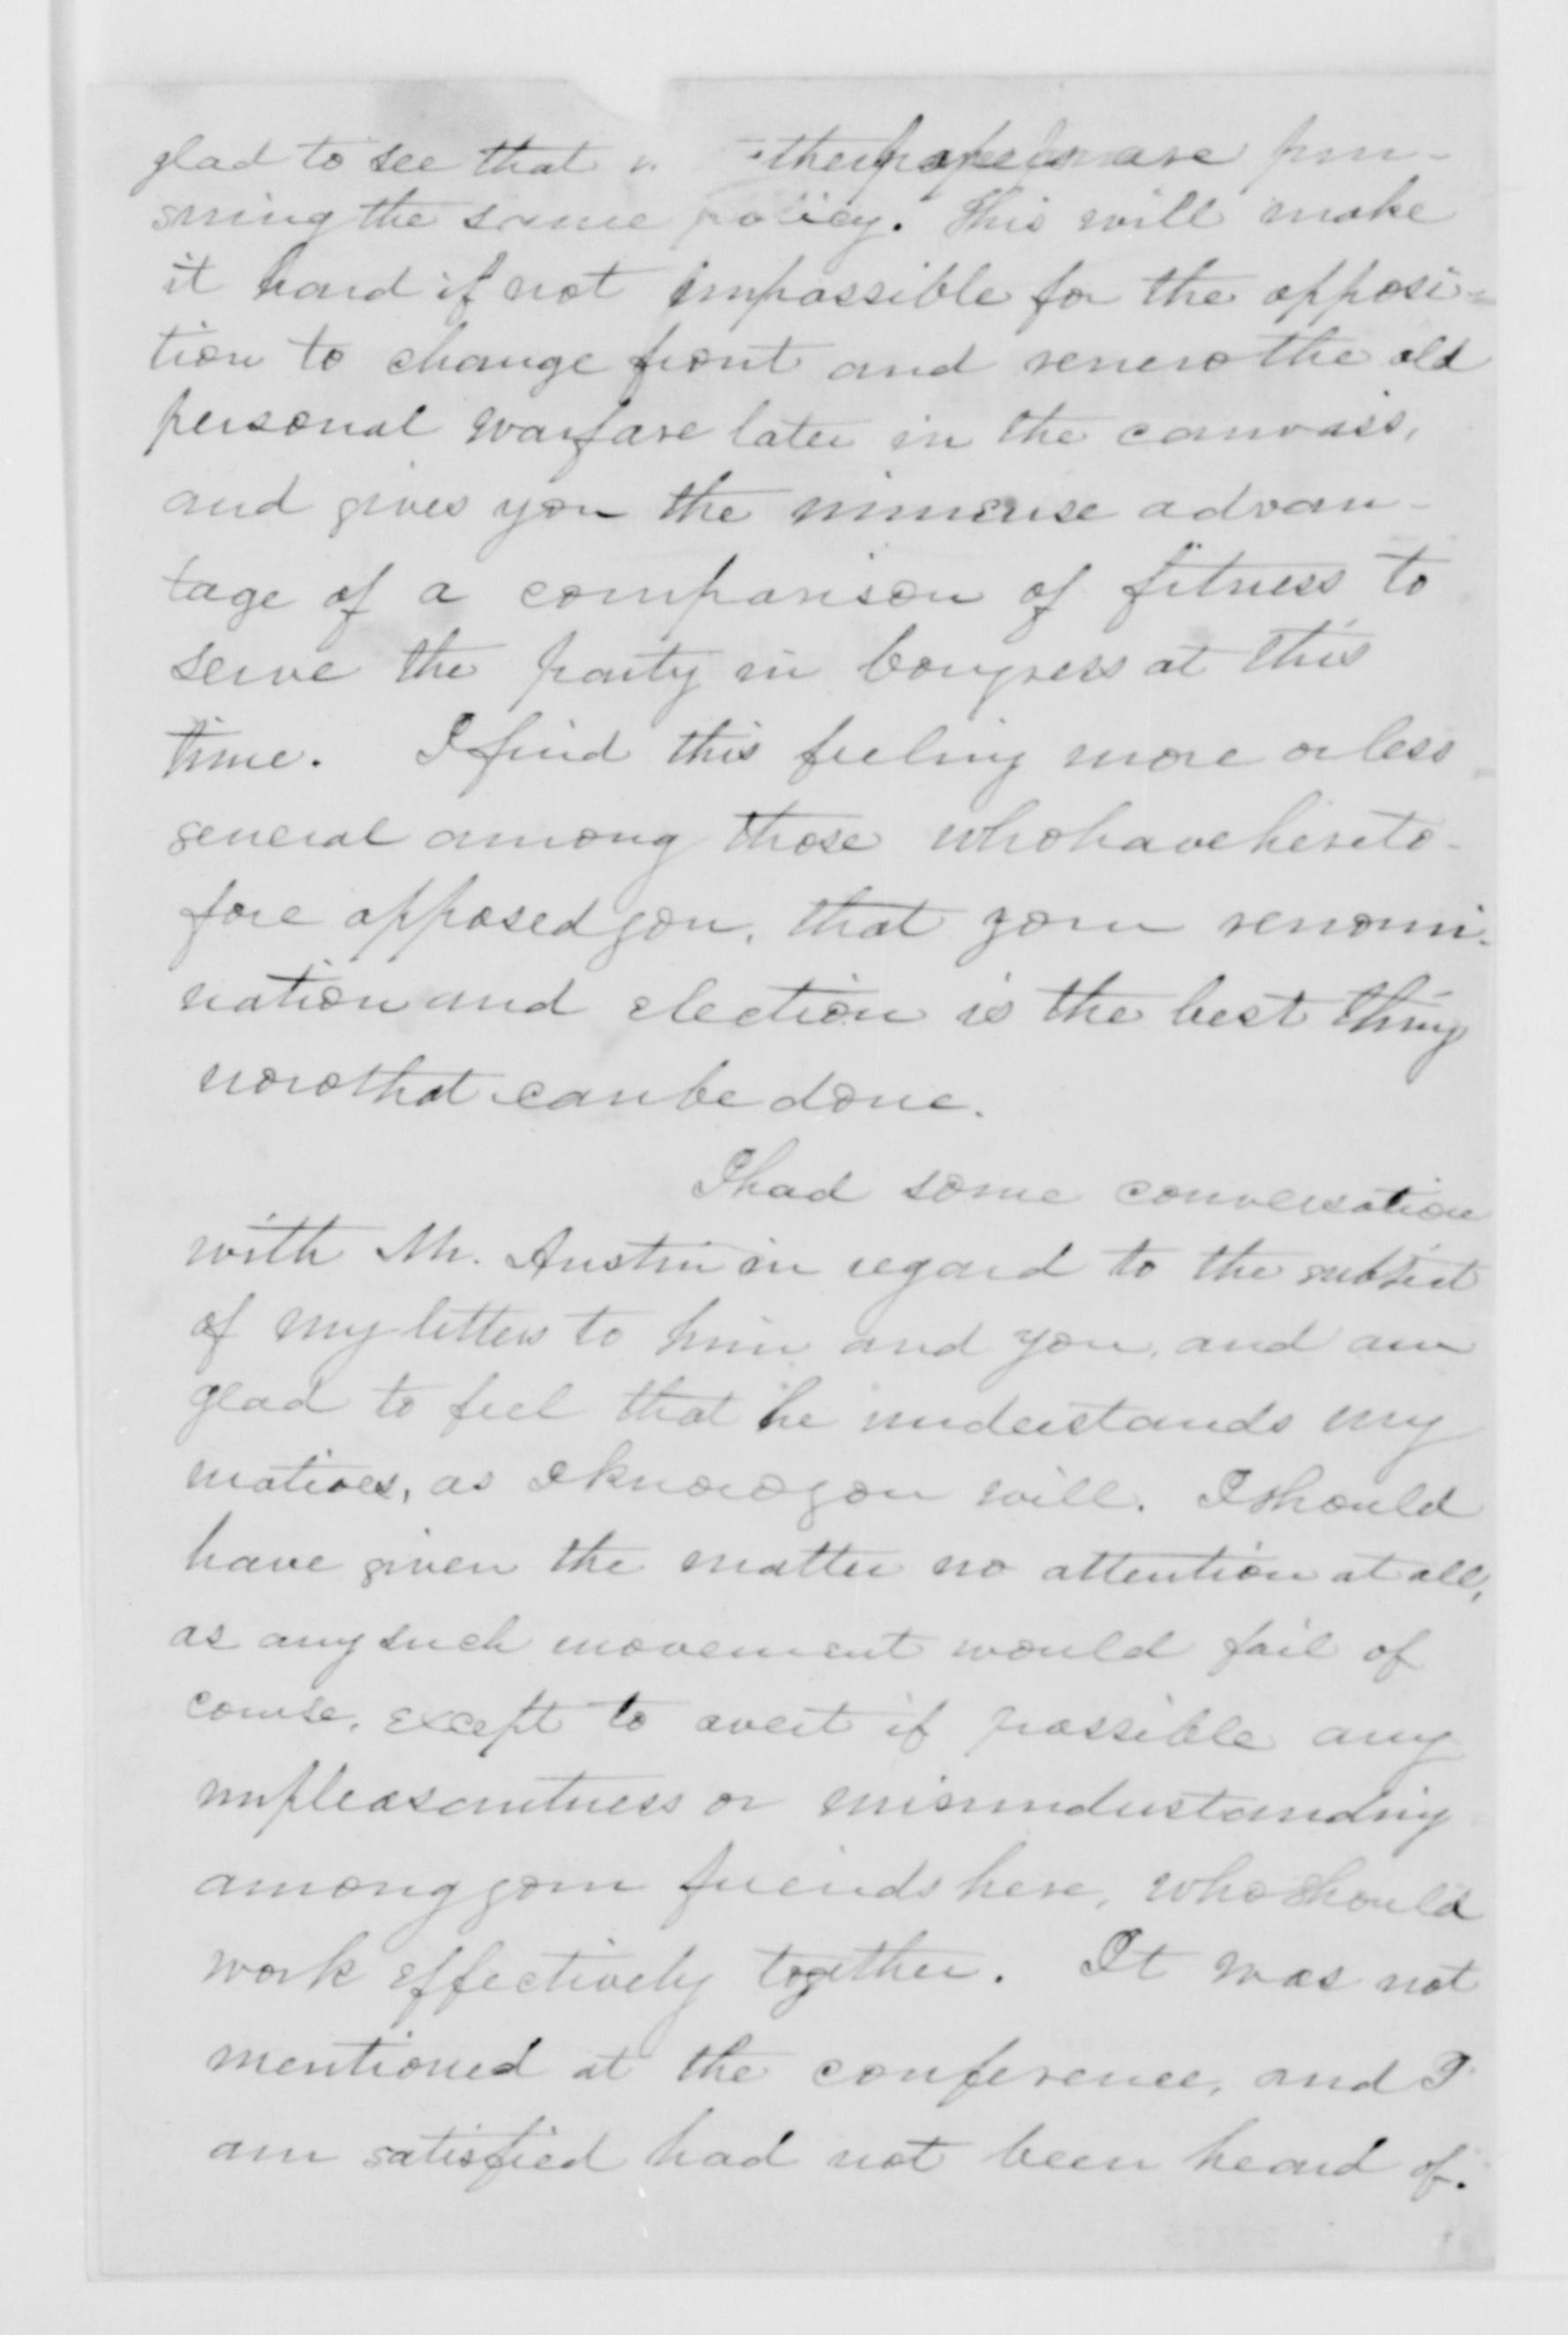 glad to see that other papers are pur-
suing the same policy. This will make
it hard if not impossible for the opposi-
tion to change front and renew the old
personal warfare later in the canvass,
and gives you the immense advan-
tage of a comparison of fitness to
serve the party in Congress at this
time. I find this feeling more or less
general among those who have hereto-
fore opposed you, that your renomi-
nation and election is the best thing
now that can be done.
I had some conversation
with Mr. Austin in regard to the subject
of my letters to him and you, and am
glad to feel that he understands my
motives, as I know you will. I should
have given the matter no attention at all,
as any such movement would fail of
course, except to avert if possible any
unpleasantness or misunderstanding
among your friends here, who should
work effectively together. It was not
mentioned at the conference, and I
am satisfied had not been heard of.